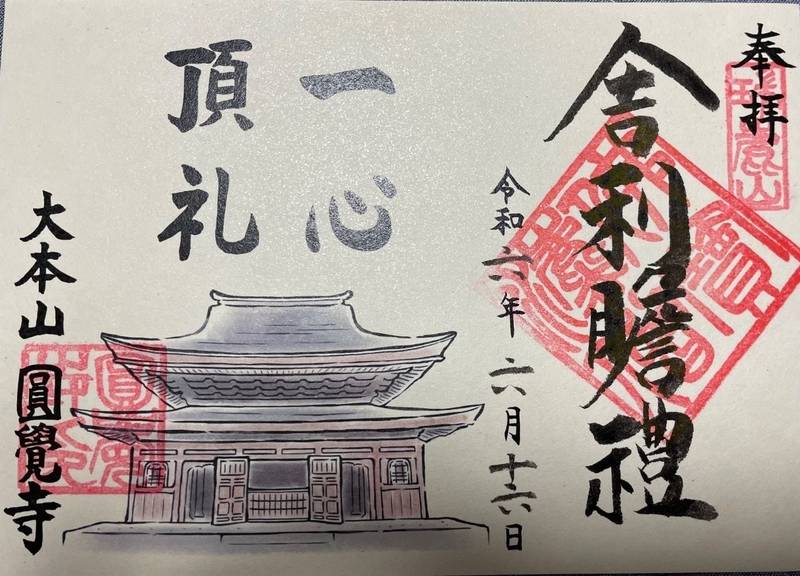 奉拝
瑞鹿山
舎利瞻禮
令和六年六月十六日
一心
頂礼
大本山圓覺寺